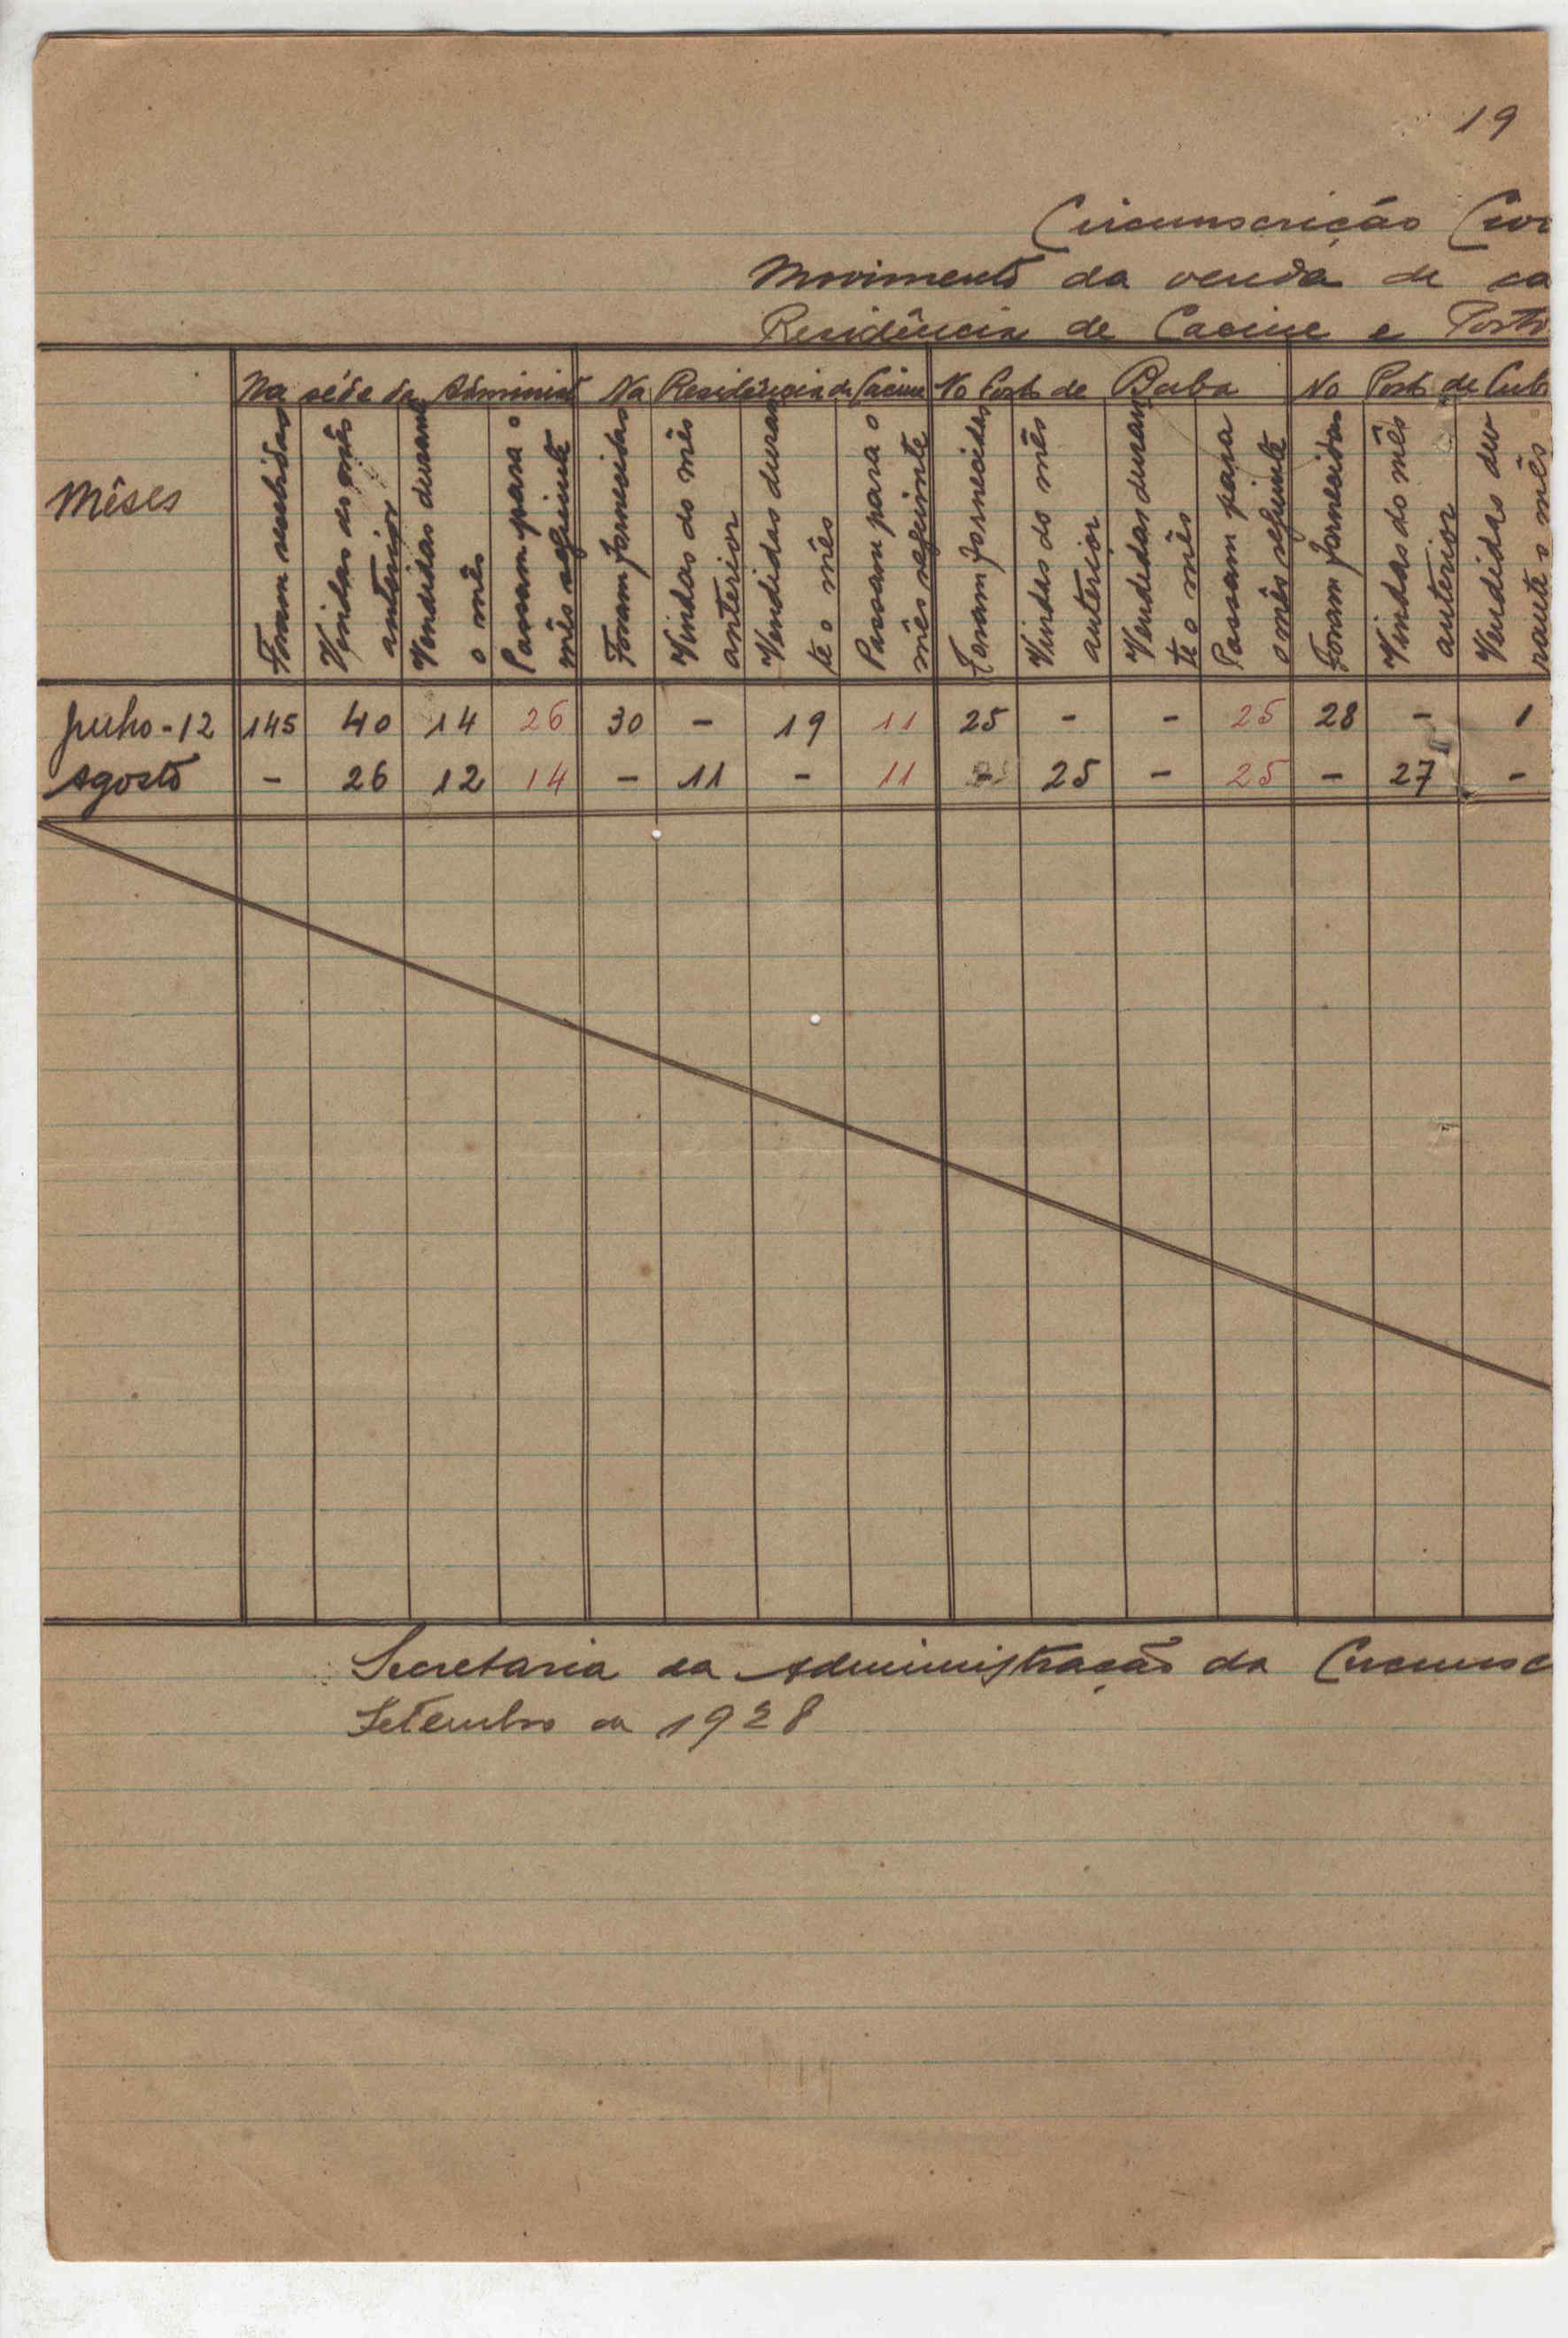 19
Circunscrição Civi
Movimento da venda de ca
Residência de Cacine e Posto
Na séde da Administ Na Residência de Cacine No Posto de Buba No Posto de Cub
Mêses
Foram recebidas
Vindas do mês anterior
Vendidas durante o mês
Passam para o mês seguinte
Foram fornecidas
Vindas do mês anterior
Vendidas duran te o mês
Passam para o mês seguinte
Foram fornecidas
Vindas do mês anterior
Vendidas duran te o mês
Passam para o mês seguinte
Foram fornecidas
Vindas do mês anterior
Vendidas du rante o mês
Julho-12 145 40 14 26 30 - 19 11 25 - - 25 28 - 1
Agosto - 26 12 14 - 11 - 11 - 25 - 25 - 27 -
Secretaria da Administração da Circunsc
Setembro de 1928